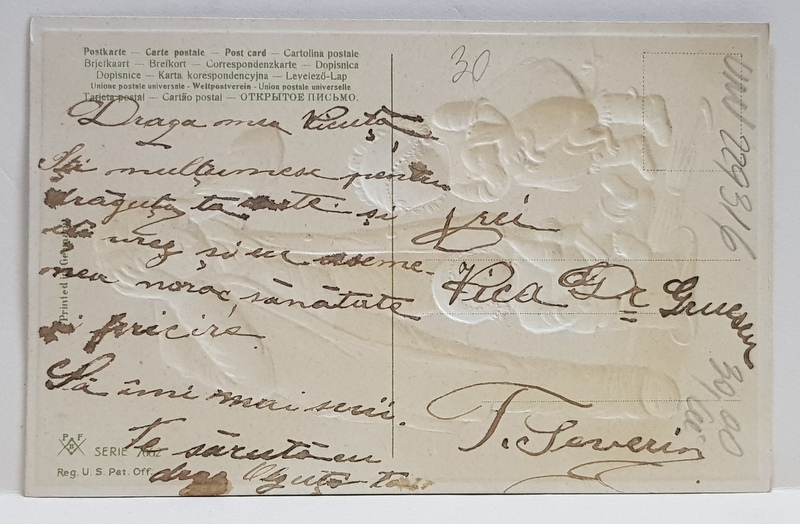 Postkarte — Carte postale — Post card — Cartolina postale
Brjefkaart — Brefkort — Correspondenzkarte — Dopisnica
Dopisnice — Karta korespondencyjna — Levelező-Lap
Unione postale universale - Weltpostverein - Union postale universelle
Tarjeta postal — Cartão postal — ОТКРЫТОЕ ПИСЬМО.
30
Draga mea Vicuță
Îți mulțumesc pentru
drăguța ta și
îți urez și eu aseme-
nea noroc, sănătate
și fericire.
Să îmi mai scrii.
Te sărută cu
drag Olguța ta
Printed in Germany
PFB
SERIE
Reg. U. S. Pat. Off.
Vica Dr
T. Severin